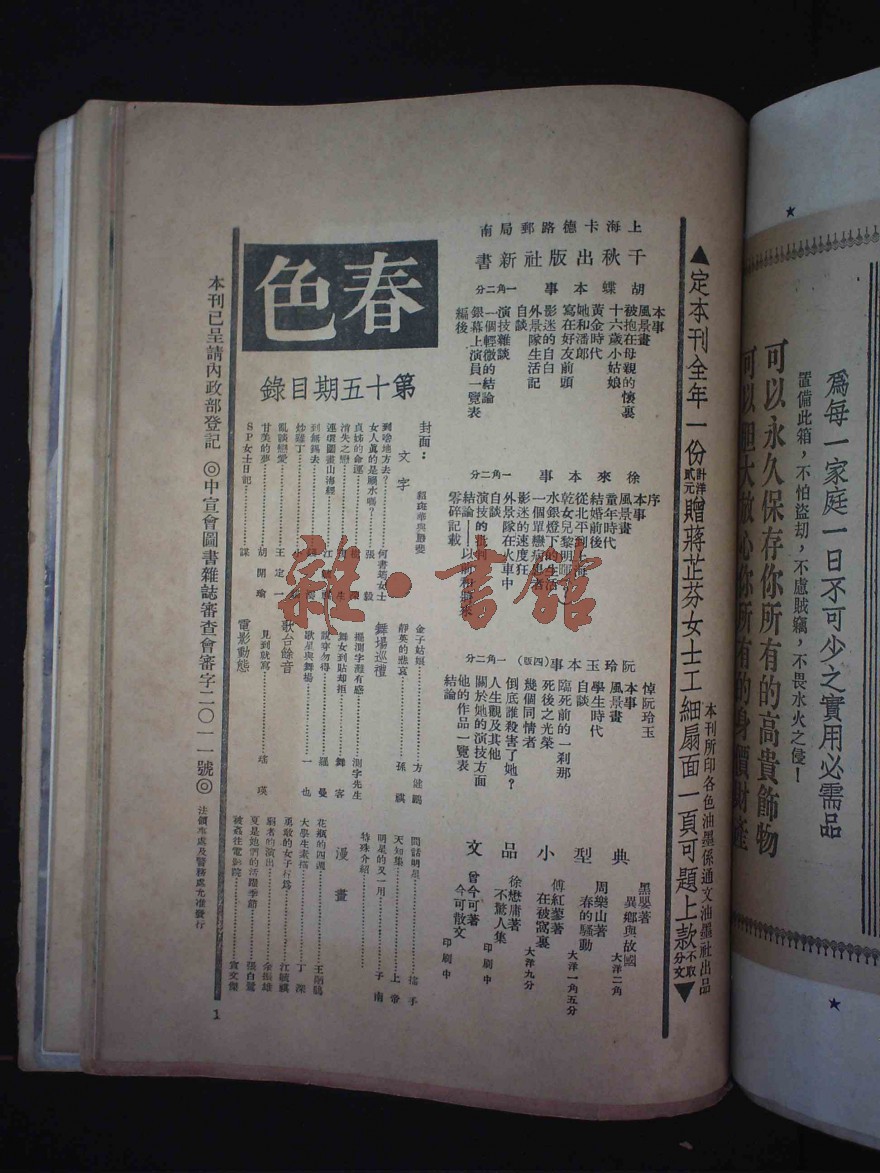 為每一家庭一日不可少之實用必需品
置備此箱，不怕盜刧，不慮賊竊，不畏水火之侵！
可以永久保存你所有的高貴飾物
本刊所印各色油墨係通文油墨社出品
▲定本刊全年一份計洋貳元贈蔣芷芬女士工細扇面一頁可題上款不取分文▼
上海卡德路郵局南
千秋出版社新書
胡蝶本事 一角二分
本事
風景畫
被抱在母親的懷裏
十六歲小姑娘
黃金時代
她和潘郎
寫在好友前頭
影迷的自白
外景隊生活記
自談
演技雜談
一個輕微的結論
銀幕上演員一覽表
編後
徐來本事 一角二分
序
本事
風景畫
童年時代
結婚前後
從北平到上海
乾女兒黎明暉
水銀燈下的生活
一個單戀病患者
影迷的速度狂
外景隊在火車中
自談
演技的批判
零碎記載
阮玲玉本事（四版） 一角二分
悼阮玲玉
本事
風景畫
學生時代
自談
臨死前的一剎那
死後之光榮
幾個同情者
倒底誰殺害了她？
人生觀及其他
關於她的演技方面
他的作品一覽表
結論
典型小品文
黑嬰著
異鄉與故國 大洋二角
周樂山著
春的騷動 大洋一角五分
傅紅蓼著
在被窩裏 大洋九分
徐懋庸著
不驚人集 印刷中
曾今可著
今可散文 印刷中
春色
第十五期目錄
封面：
文字
到啥地方去？ 何書題女士
女人真的是禍水嗎？ 張毅
貞姊的命運
清失之戀
連環圖畫山海經
到無錫去
炒雞丁
亂談戀愛 王定一
甘美的夢 胡開瑜
SP女士日記 謀
金子姑娘 方健鵬
靜英的悲哀 孫祺
舞場巡禮
楊測字攤有感 測字先生
舞女到貼却拒 舞客
說穿勿得 羅曼
歌星與舞場 一也
歌台餘音
見到就寫 瑤瑛
電影動態
閒話明星 搖手
天知集 上帝
明星的又一用 子南
特殊介紹
漫畫
花瓶的四週 王炳鶴
大學生素描 丁深
勇敢的女子行為 江毓祺
窮者的演出 余振雄
夏是她們的活躍季節 張白鷺
被姦在電影院 袁文傑
本刊已呈請內政部登記 ◎中宣會圖書雜誌審查會審字二〇一一號◎
1
雜·書館